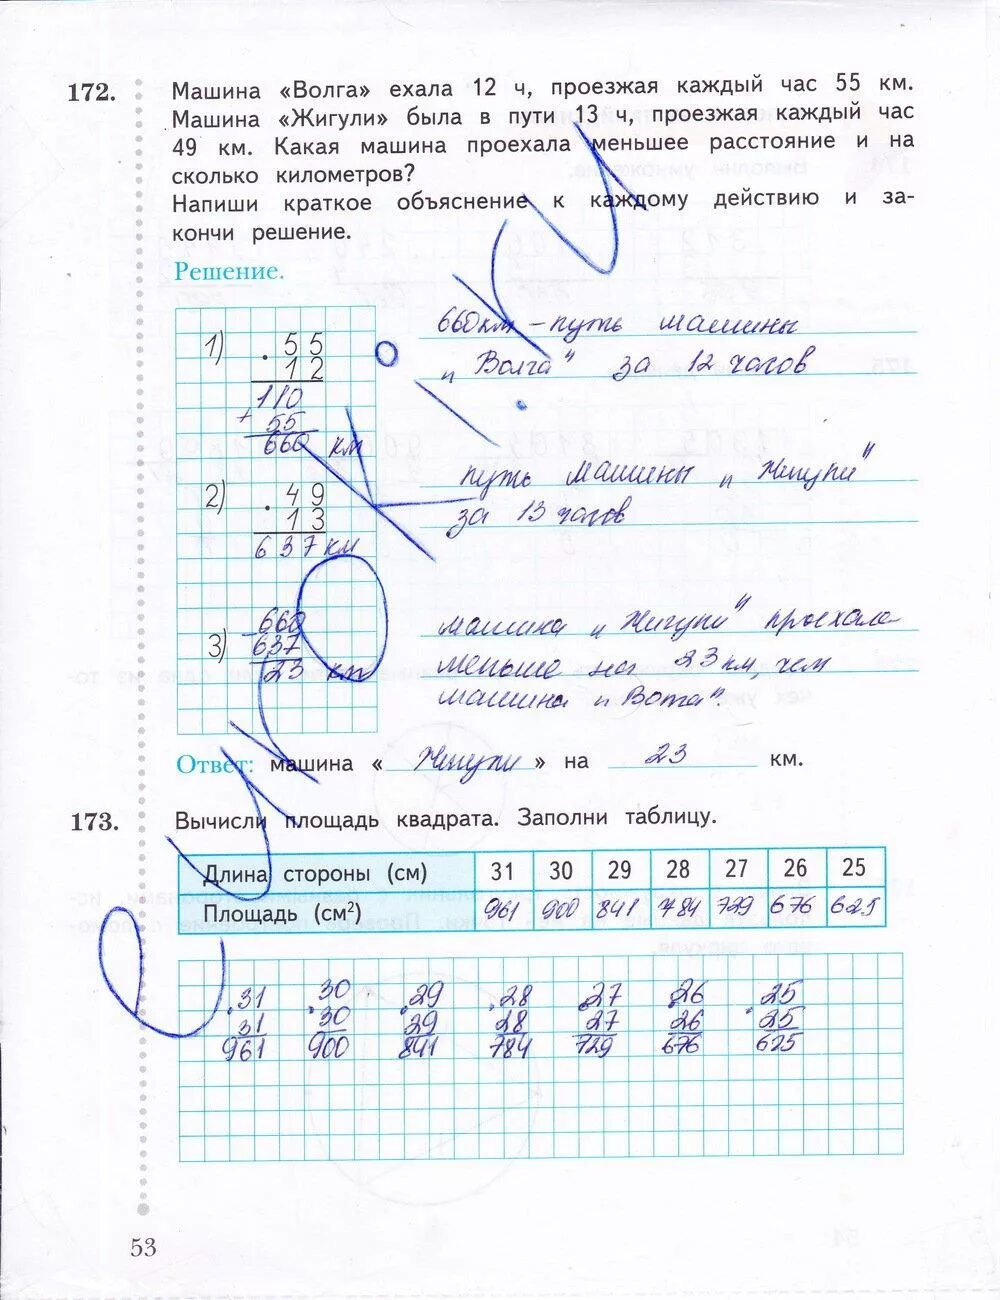 172. Машина «Волга» ехала 12 ч, проезжая каждый час 55 км.
Машина «Жигули» была в пути 13 ч, проезжая каждый час
49 км. Какая машина проехала меньшее расстояние и на
сколько километров?
Напиши краткое объяснение к каждому действию и за-
кончи решение.
Решение.
1) 55
12
110
+ 55
660 км
660 км – путь машины
„Волга" за 12 часов
2) 49
13
637 км
путь машины „Жигули"
за 13 часов
3) 660
- 637
23 км
машина „Жигули" проехала
меньше на 23 км, чем
машина „Волга".
Ответ: машина « Жигули » на 23 км.
173. Вычисли площадь квадрата. Заполни таблицу.
Длина стороны (см) 31 30 29 28 27 26 25
Площадь (см²) 961 900 841 784 729 676 625
.31 .30 .29 .28 .27 .26 .25
31 30 29 28 27 26 25
961 900 841 784 729 676 625
53